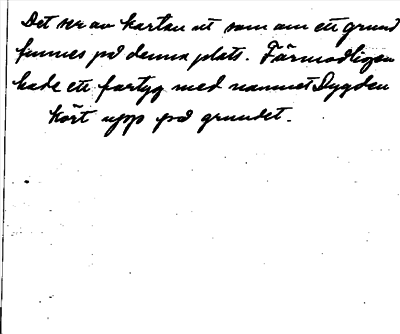 Det ser av kartan ut som om ett grund
funnes på denna plats. Förmodligen
hade ett fartyg med namnet Dygden
kört upp på grundet.